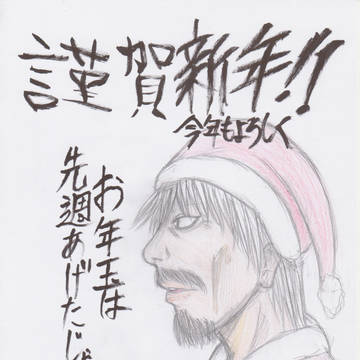 謹賀新年!!
今年もよろしく
お年玉は
先週あげたじゃ